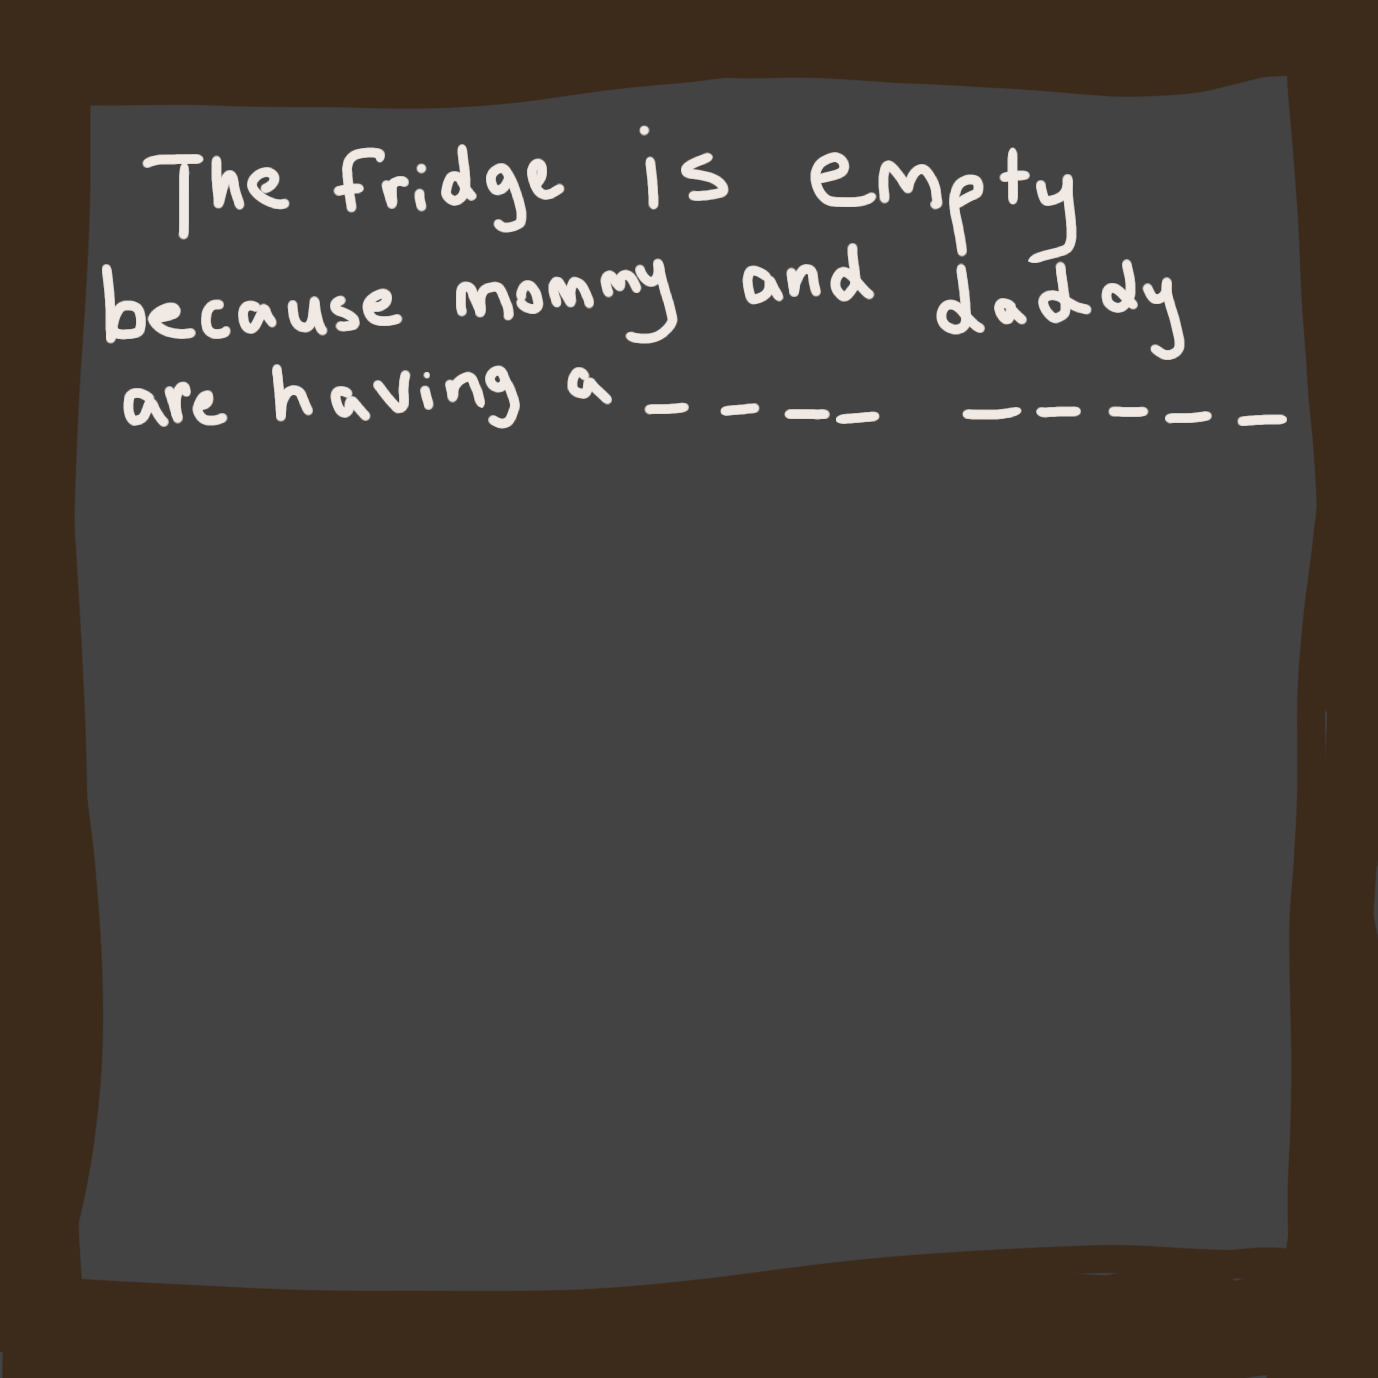 The fridge is empty
because mommy and daddy
are having a _ _ _ _  _ _ _ _ _